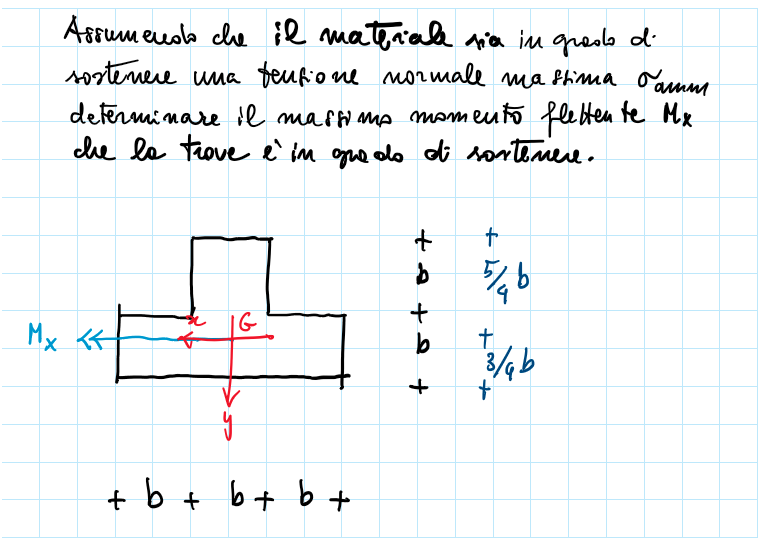 Assumendo che il materiale sia in grado di
sostenere una tensione normale massima σamm
determinare il massimo momento flettente Mx
che la trave e' in grado di sostenere.
+ +
b 5/4 b
+
x G
Mx b +
3/4 b
+ +
y
+ b + b + b +